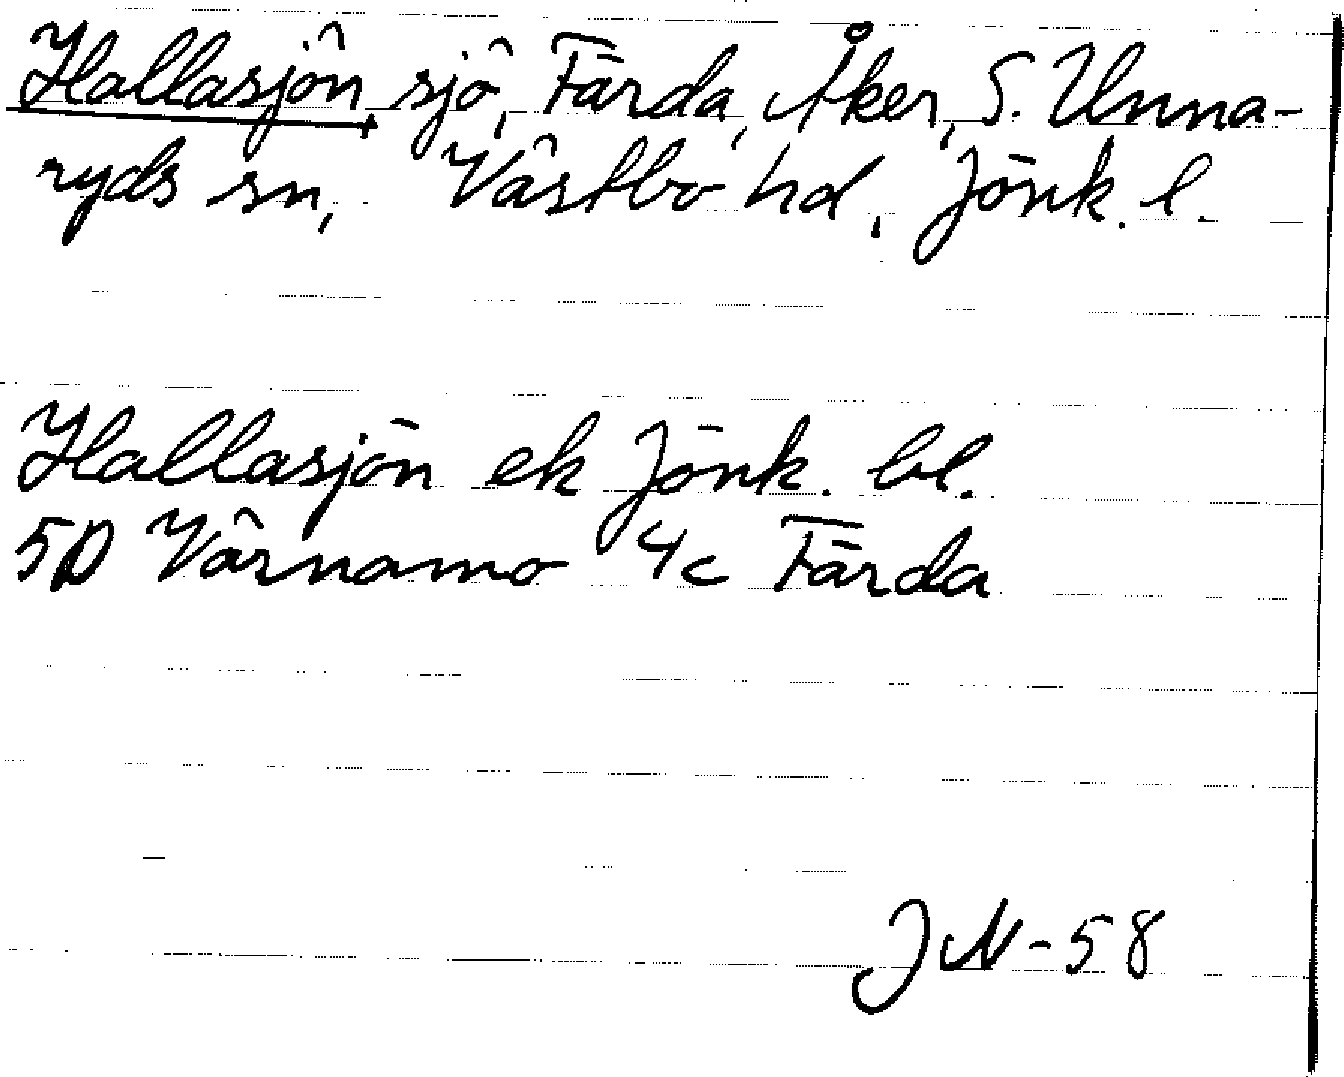 Hallasjön, sjö, Färda, Åker, S. Unna-
ryds sn, Västbo hd, Jönk. l.
Hallasjön ek Jönk. bl.
5D Värnamo 4c Färda
JN-58